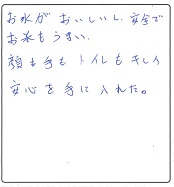 お水が おいしいし、安全で
お米もうまい。
顔も手もトイレもキレイ
安心を手に入れた。